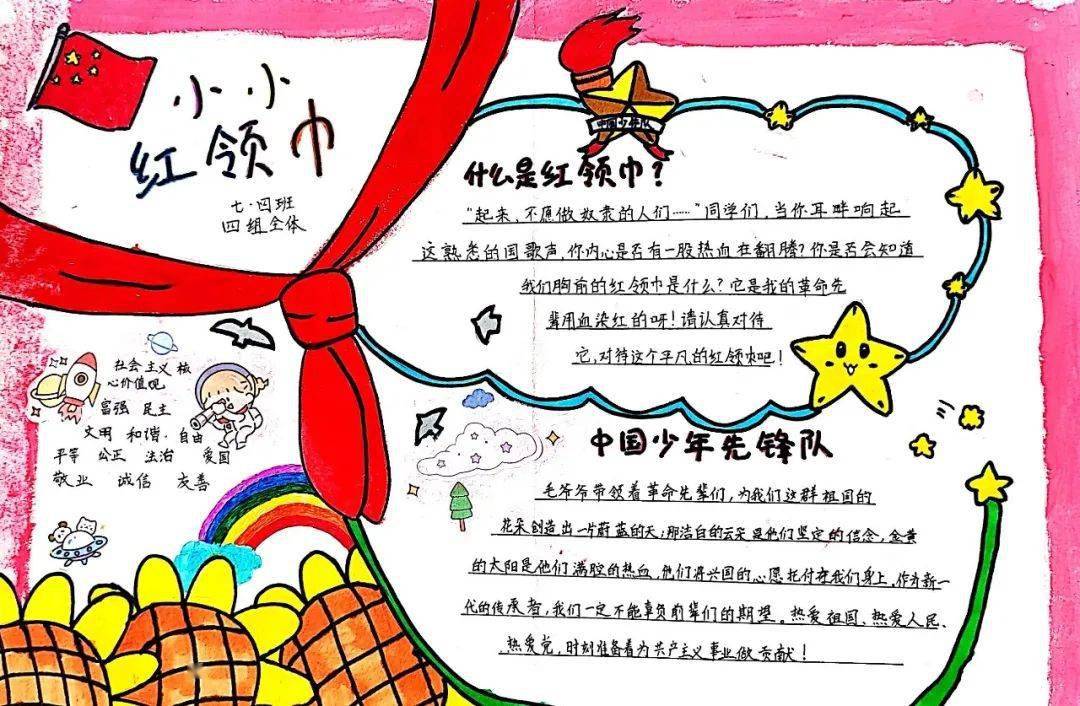 小小
红领巾
七·四班
四组全体
中国少年队
什么是红领巾？
“起来，不愿做奴隶的人们……”同学们，当你耳畔响起
这熟悉的国歌声，你内心是否有一股热血在翻腾？你是否会知道
我们胸前的红领巾是什么？它是我的革命先
辈用血染红的呀！请认真对待
它，对待这个平凡的红领巾吧！
社会主义核
心价值观
富强 民主
文明 和谐·自由
平等 公正 法治 爱国
敬业 诚信 友善
中国少年先锋队
毛爷爷带领着革命先辈们，为我们这群祖国的
花朵创造出一片蔚蓝的天；那洁白的云朵是他们坚定的信念，金黄
的太阳是他们满腔的热血，他们将兴国的心愿托付在我们身上，作为新一
代的传承者，我们一定不能辜负前辈们的期望。热爱祖国、热爱人民、
热爱党，时刻准备着为共产主义事业做贡献！